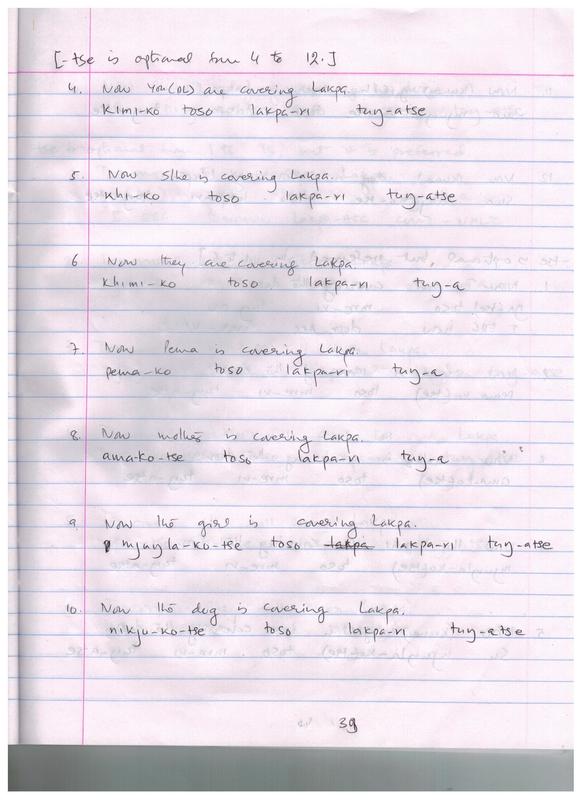 [-tse is optional from 4 to 12.]
4. Now You(DL) are covering Lakpa.
kimi-ko toso lakpa-ri tuŋ-atse
5. Now s/he is covering Lakpa.
khi-ko toso lakpa-ri tuŋ-atse
6 Now they are covering Lakpa.
khimi-ko toso lakpa-ri tuŋ-a
7. Now Pema is covering Lakpa.
pema-ko toso lakpa-ri tuŋ-a
8. Now mother is covering Lakpa.
ama-ko-tse toso lakpa-ri tuŋ-a
9. Now the girl is covering Lakpa.
mjuŋla-ko-tse toso lakpa lakpa-ri tuŋ-atse
10. Now the dog is covering Lakpa.
nikju-ko-tse toso lakpa-ri tuŋ-atse
39